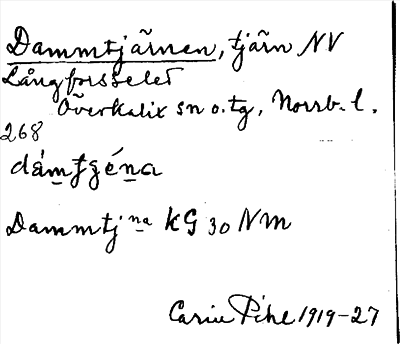 Dammtjärnen, tjärn NV
Långforsselet
Överkalix sn o. tg, Norrb. l.
268
Dammtj na KG 30 NM
Carin Pihl 1919-27